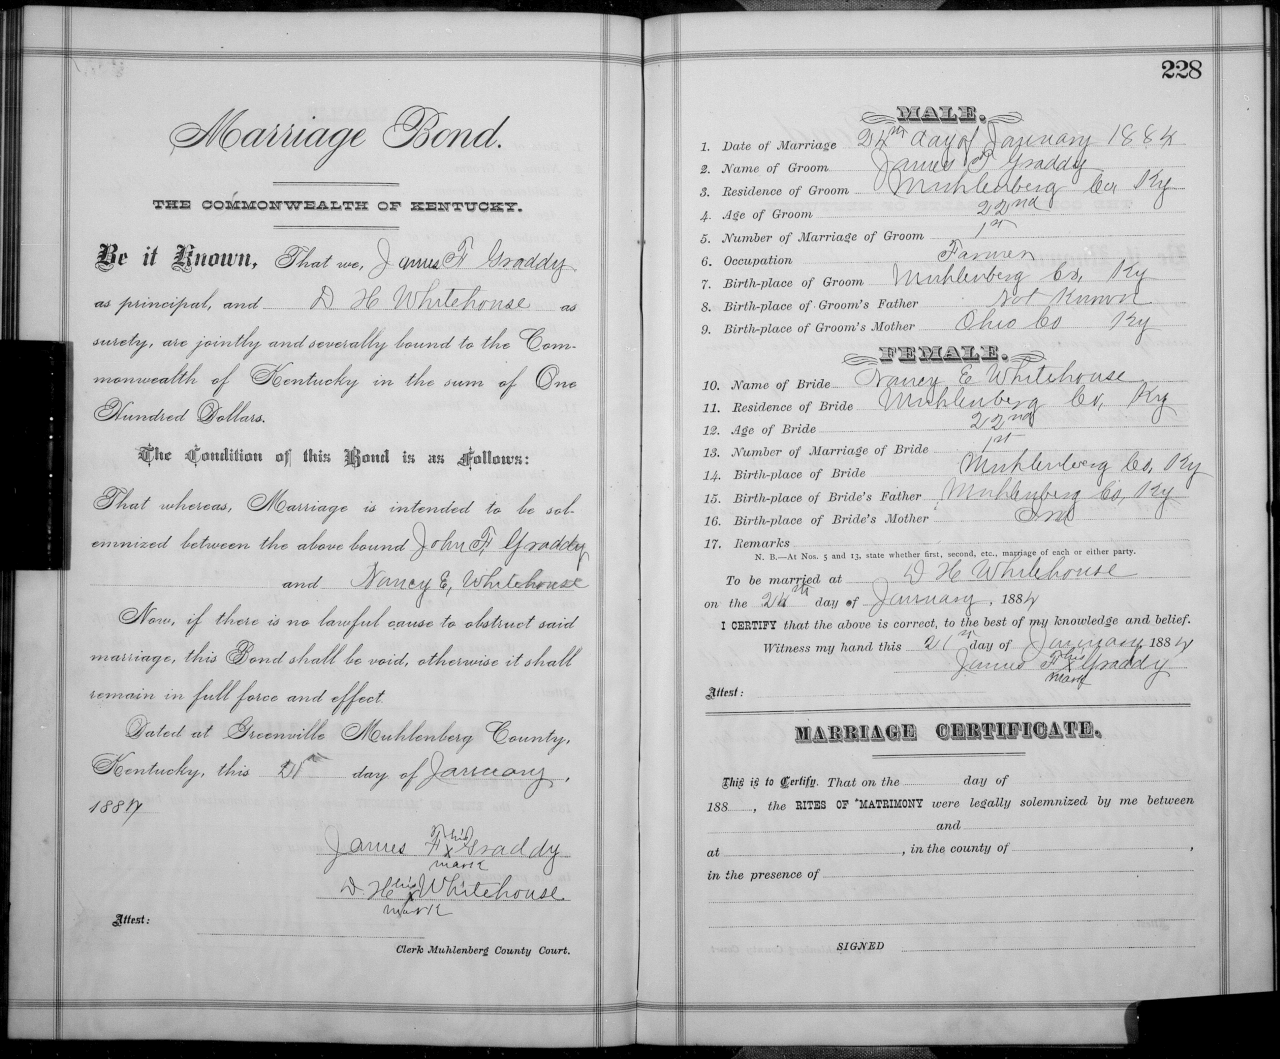 Marriage Bond.
THE COMMONWEALTH OF KENTUCKY.
Be it Known, That we, James F Graddy
as principal, and D H Whitehouse as
surety, are jointly and severally bound to the Com-
monwealth of Kentucky in the sum of One
Hundred Dollars.
The Condition of this Bond is as Follows:
That whereas, Marriage is intended to be sol-
emnized between the above bound John F Graddy
and Nancy E, Whitehouse
Now, if there is no lawful cause to obstruct said
marriage, this Bond shall be void, otherwise it shall
remain in full force and effect.
Dated at Greenville Muhlenberg County,
Kentucky, this 21st day of January,
1884
James F his x mark Graddy
D H his x mark Whitehouse
Attest:
Clerk Muhlenberg County Court.
228
MALE.
1. Date of Marriage 24th day of January 1884
2. Name of Groom James F Graddy
3. Residence of Groom Muhlenberg Co, Ky
4. Age of Groom 22nd
5. Number of Marriage of Groom 1st
6. Occupation Farmer
7. Birth-place of Groom Muhlenberg Co, Ky
8. Birth-place of Groom's Father Not Known
9. Birth-place of Groom's Mother Ohio Co Ky
FEMALE.
10. Name of Bride Nancy E Whitehouse
11. Residence of Bride Muhlenberg Co, Ky
12. Age of Bride 22nd
13. Number of Marriage of Bride 1st
14. Birth-place of Bride Muhlenberg Co, Ky
15. Birth-place of Bride's Father Muhlenberg Co, Ky
16. Birth-place of Bride's Mother
17. Remarks
N. B.—At Nos. 5 and 13, state whether first, second, etc., marriage of each or either party.
To be married at D H Whitehouse
on the 24th day of January, 1884
I CERTIFY that the above is correct, to the best of my knowledge and belief.
Witness my hand this 21st day of January, 1884
James F his x mark Graddy
Attest:
MARRIAGE CERTIFICATE.
This is to Certify, That on the day of
188 , the RITES OF MATRIMONY were legally solemnized by me between
and
at , in the county of ,
in the presence of
SIGNED